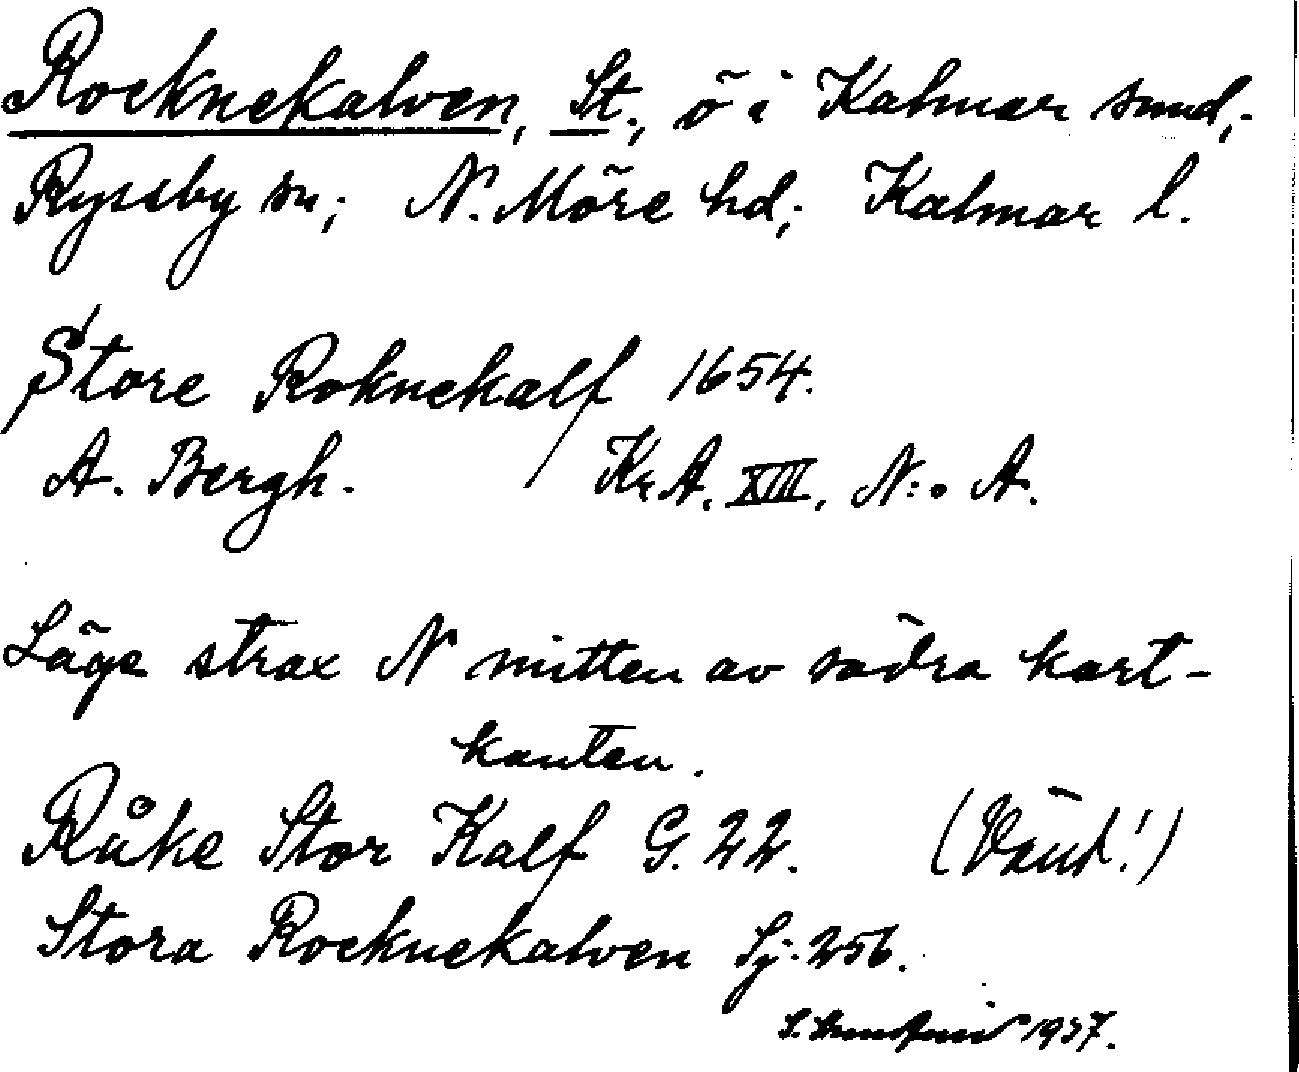 Rocknekalven, St., ö i Kalmar sund,
Ryssby sn; N. Möre hd; Kalmar l.
Store Roknekalf 1654.
A. Bergh. Kr A. XIII. N:o A.
Läge strax N mitten av södra kart-
kanten.
Råke Stor Kalf G. 22. (Vänd!)
Stora Rocknekalven Sj. 256.
1937.